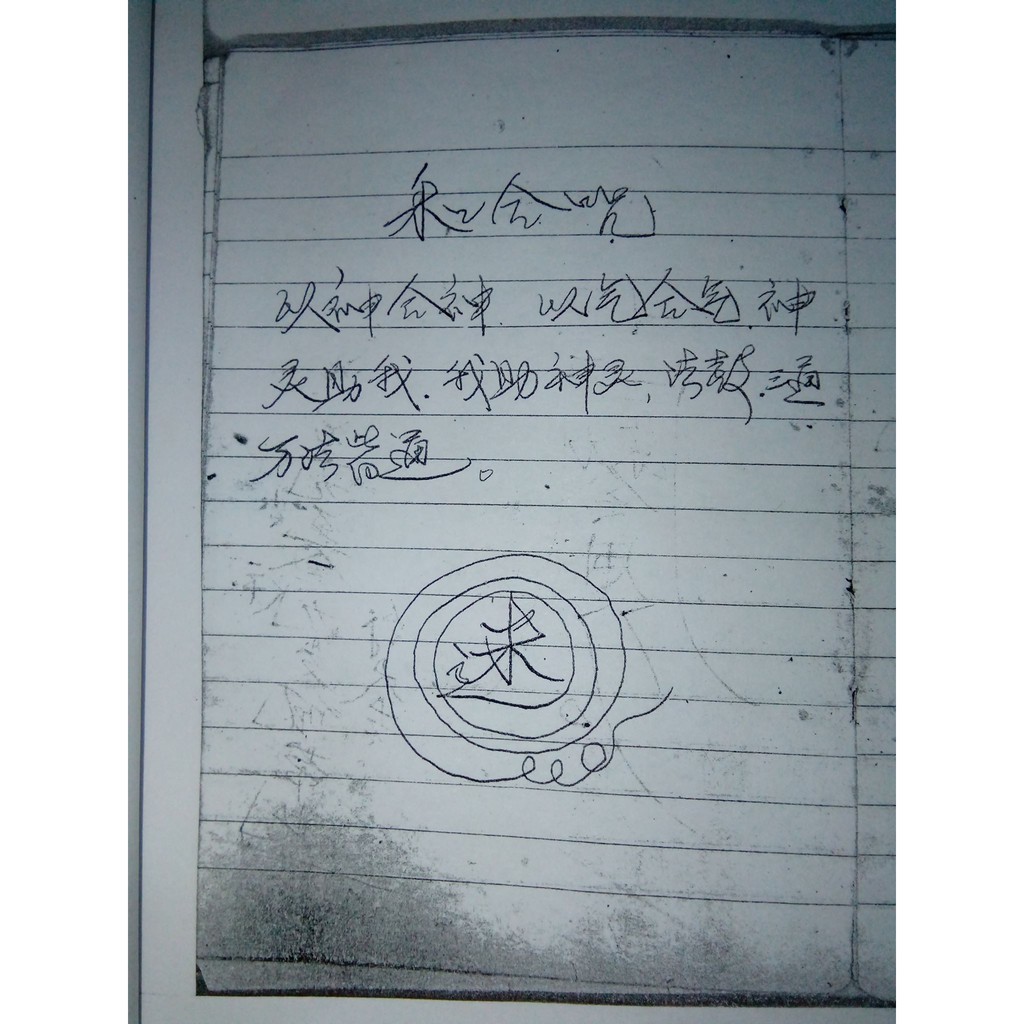 和合咒
以神合神.以气合气.神
灵助我.我助神灵,法鼓.三通
万法皆通。